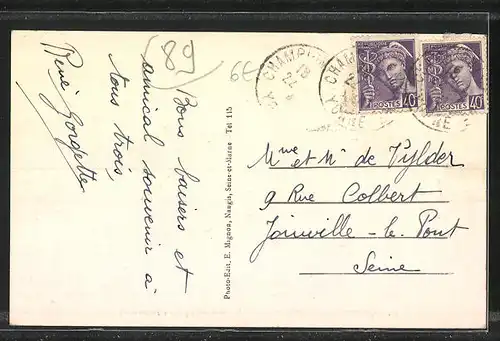 (89)
6E
Bons baisers et
amical souvenir à
tous trois,
René Georgette
Photo-Edit. E. Mignon, Nangis, Seine-et-Marne Tél 115
CHAMPI
CHAM
POSTES 40
POSTES 40
Mme et Mr de Vylder
9 Rue Colbert
Joinville-le-Pont
Seine